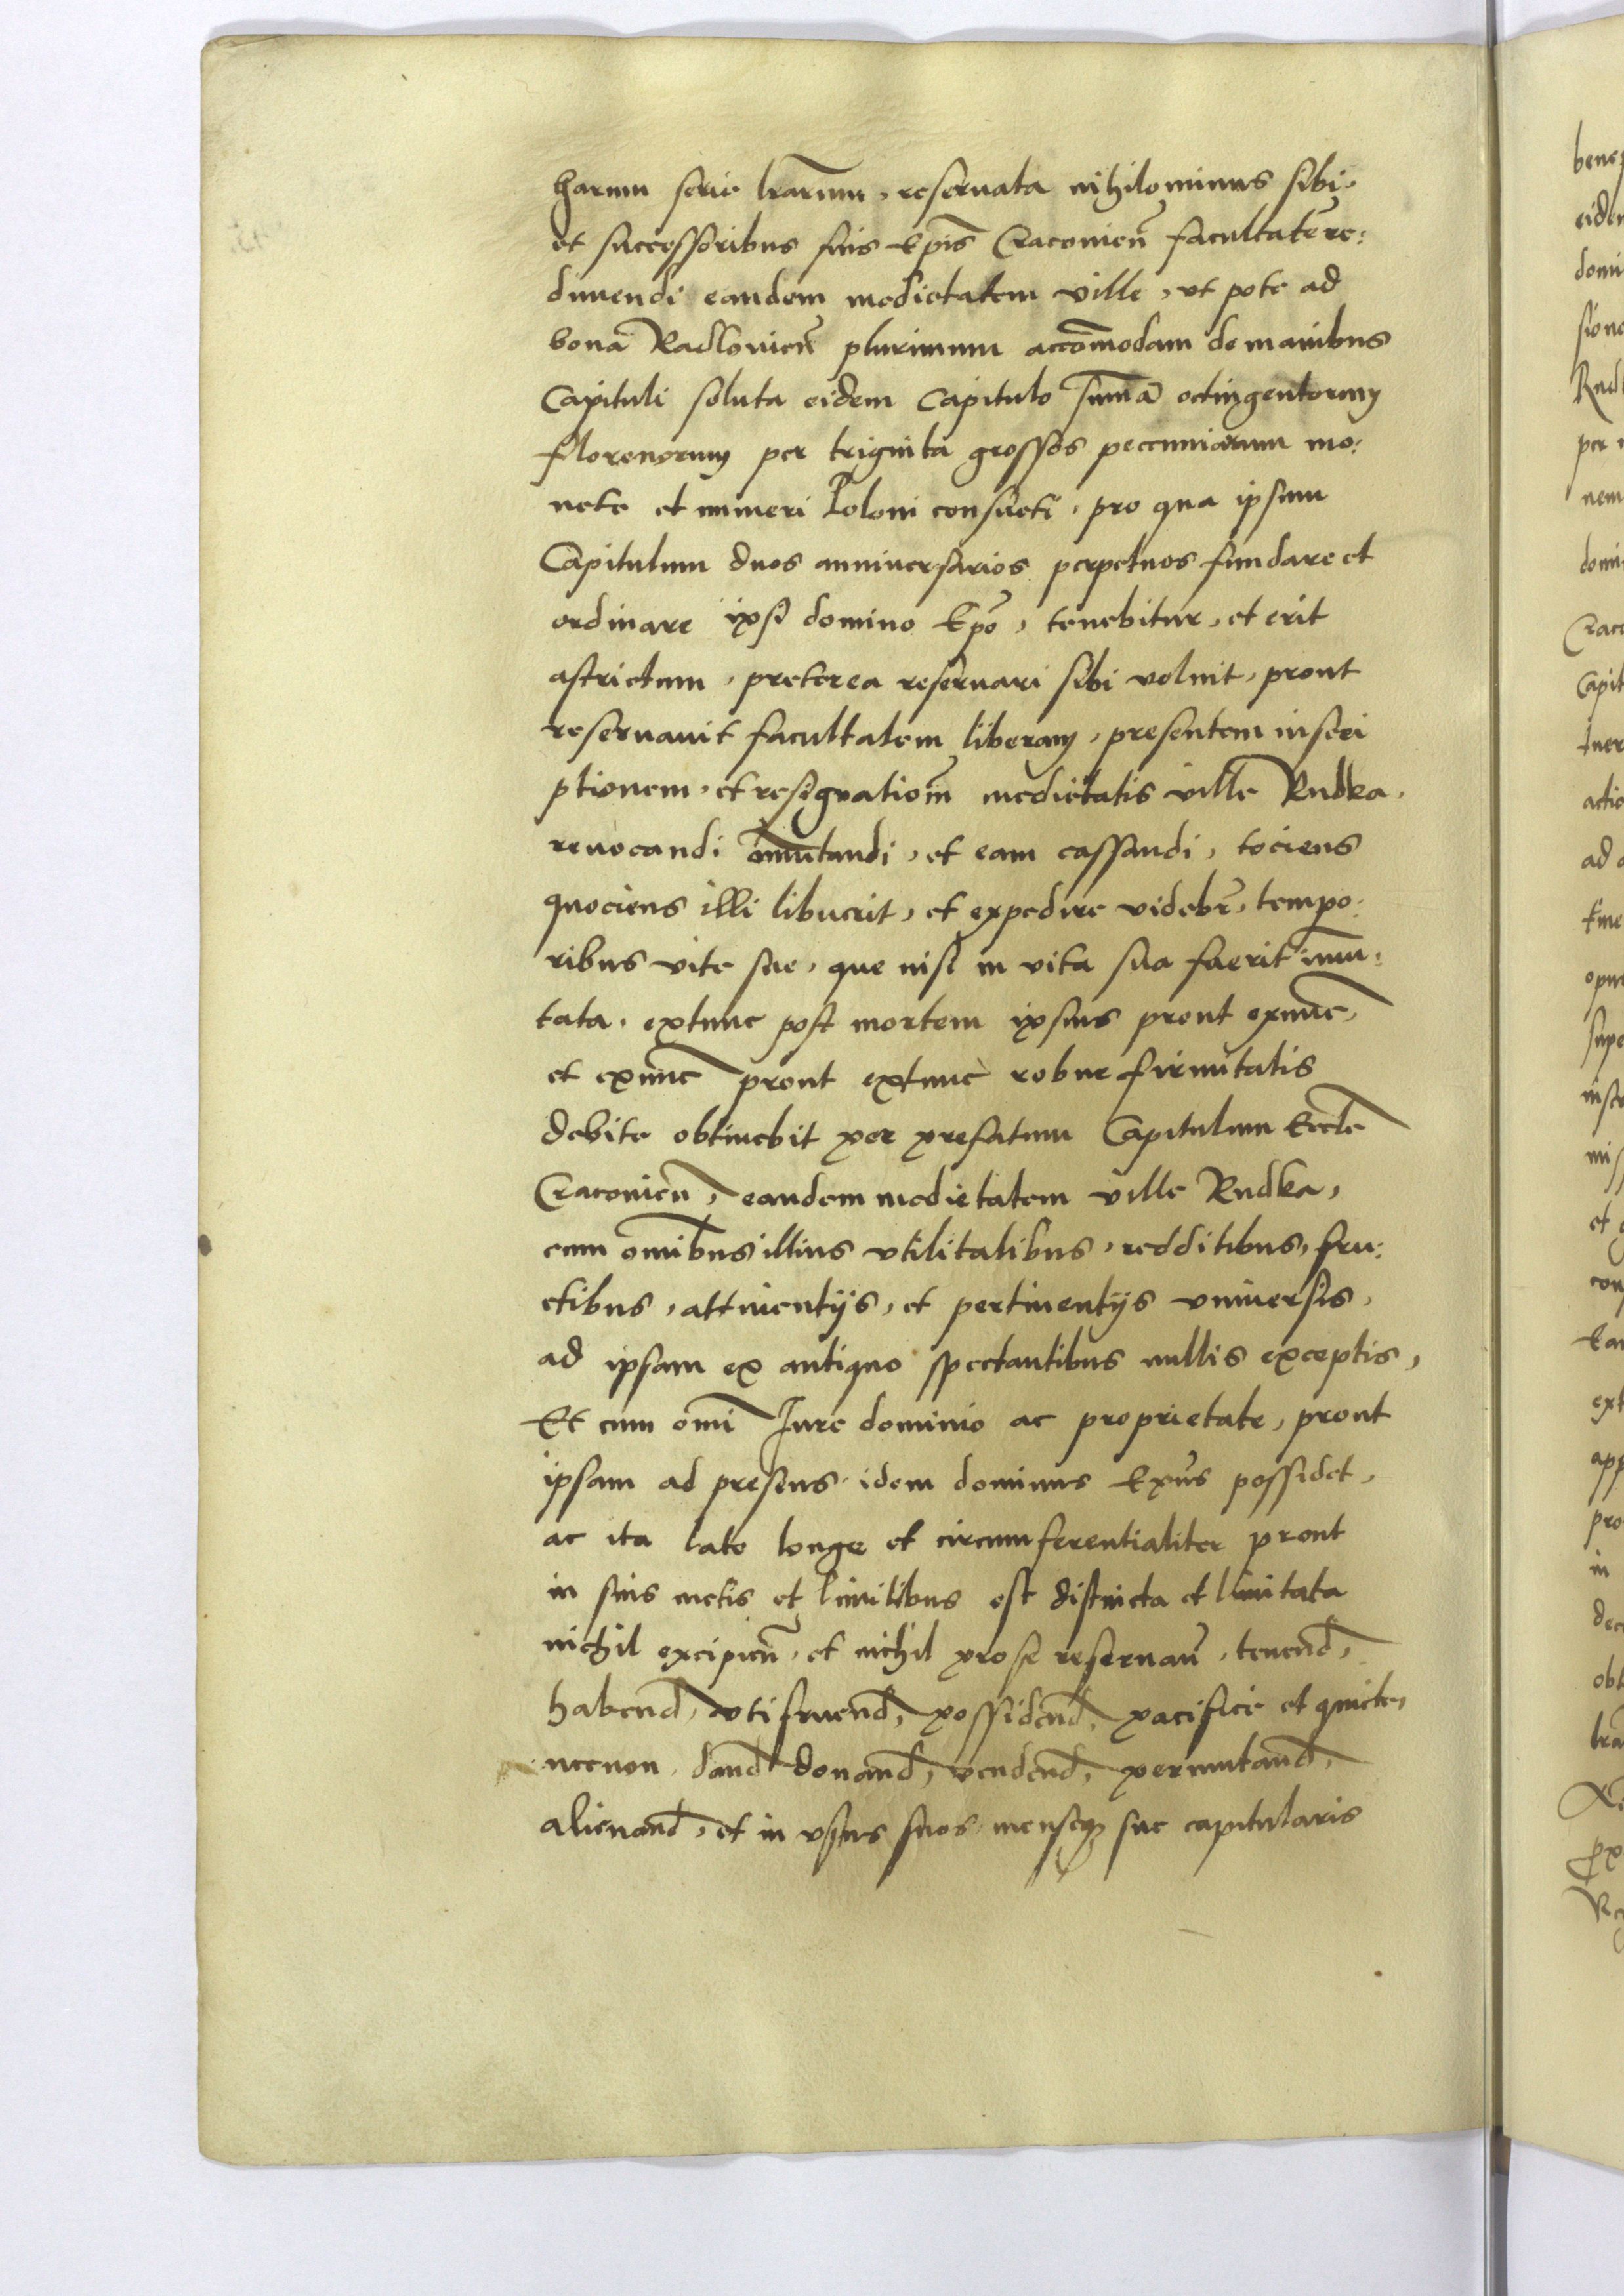 harum serie lrarum, reseruata nihilominus sibi,
et successoribus suis Epis Cracovien facultate re:
dimendi eandem medietatem ville, ut pote ad
bona Radlovien plurimum accomodam de manibus
Capituli soluta eidem Capitulo summa octingentorum
florenorum per triginta grossos pecuniarum mo:
nete et numeri Poloni consueti, pro qua ipsum
Capitulum duos anniversarios perpetuos fundare et
ordinare ipsi domino Epo, tenebitur, et erit
astrictum, preterea reseruari sibi voluit, prout
reseruauit facultatem liberam, presentem inscri
ptionem, et resignationem medietatis ville Rudka,
reuocandi immutandi, et eam cassandi, tociens
quociens illi libuerit, et expedire videbr, tempo:
ribus vite sue, que nisi in vita sua fuerit immu:
tata, extunc post mortem ipsius prout exnunc,
et exnunc prout extunc robur firmitatis
debite obtinebit per prefatum Capitulum Eccle
Cracovien, eandem medietatem ville Rudka,
cum omibus illius vtilitatibus, redditibus, fru:
ctibus, attinentijs, et pertinentijs vniuersis,
ad ipsam ex antiquo spectantibus nullis exceptis,
Et cum omi Iure dominio ac proprietate, prout
ipsam ad presens idem dominus Epus possidet,
ac ita late longe et circumferentialiter prout
in suis metis et limitibus est distincta et limitata
nichil excipien, et nichil pro se reseruan, tenend,
habend, vtifruend, possidend, pacifice et quiete,
necnon dand donand, vendend, permutand,
alienand, et in vsus suos menseq sue capitularis
benep
eiden
domi
sione
Rud
per
nem
domi
Crac
Capit
actio
ad
opus
supe
et
ext
app
pro
in
dec
obt
lra